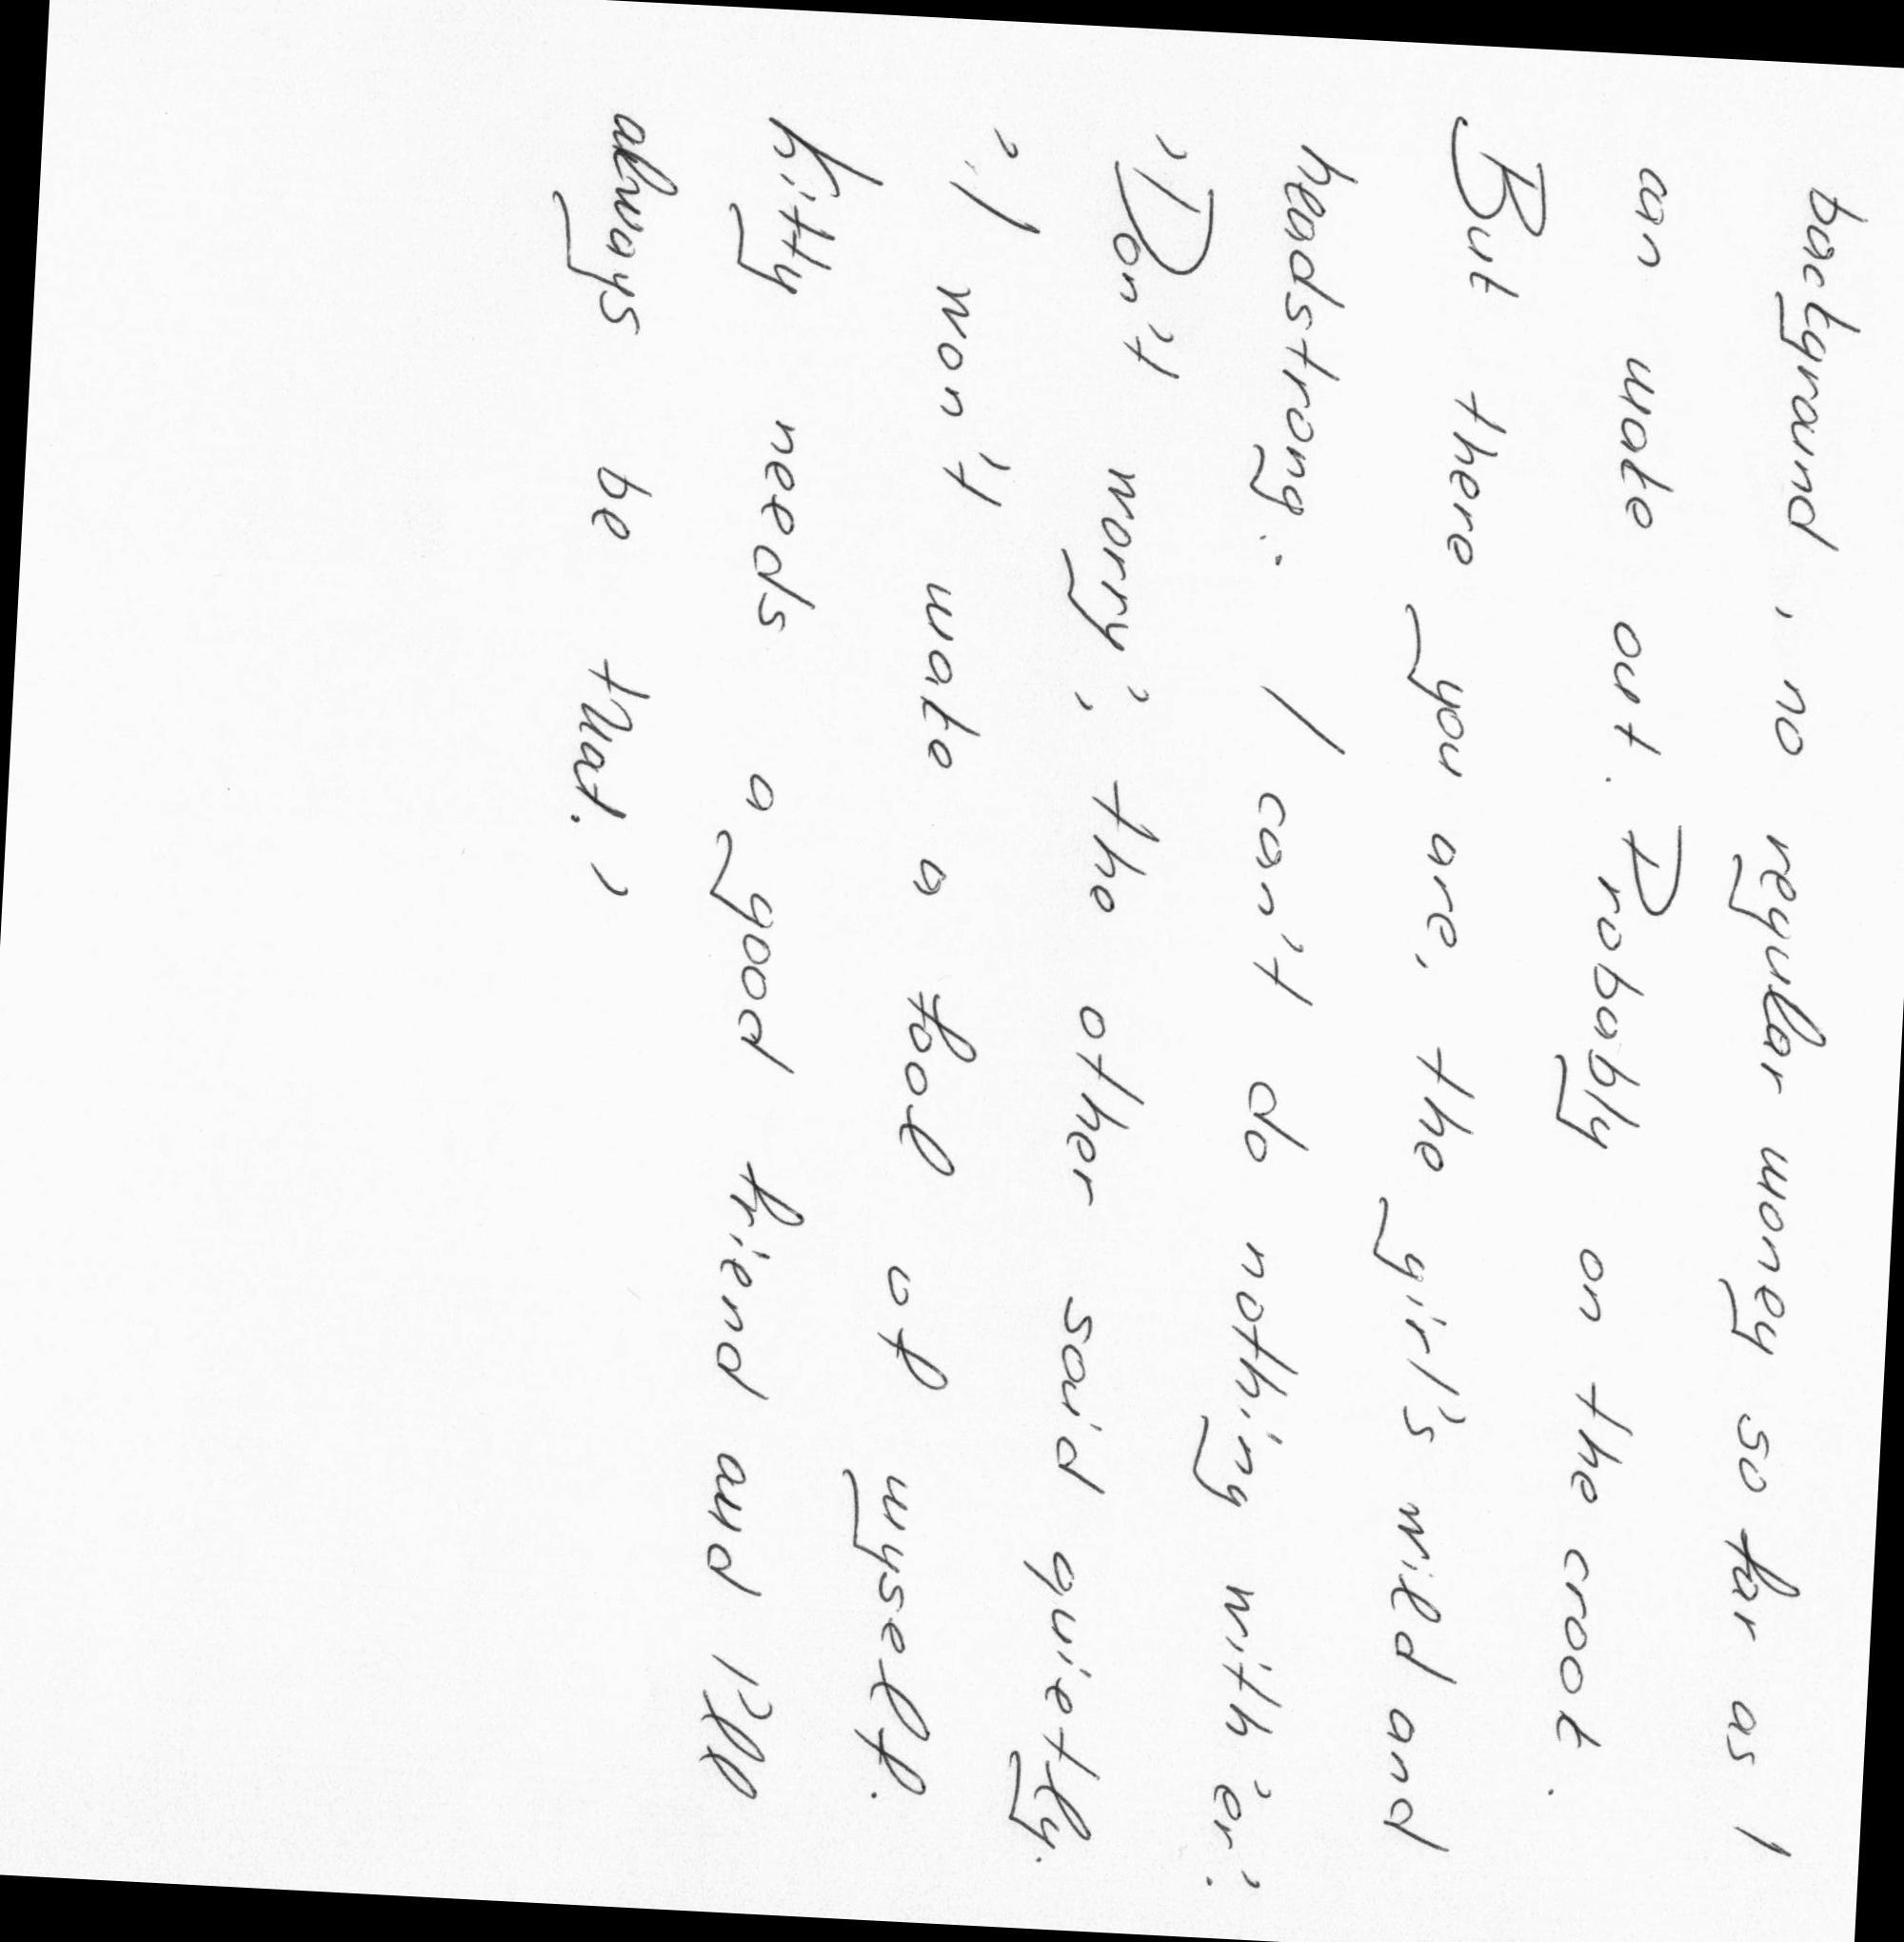 backyround, no reyular money so far as I
can make out. Probably on the crook.
But there you are, the girl's wild and
headstrong: I can't do nothing with 'er.'
'Don't worry,' the other said quietly.
'I won't make a fool of myself.
Kitty needs a good friend and I'll
always be that.'